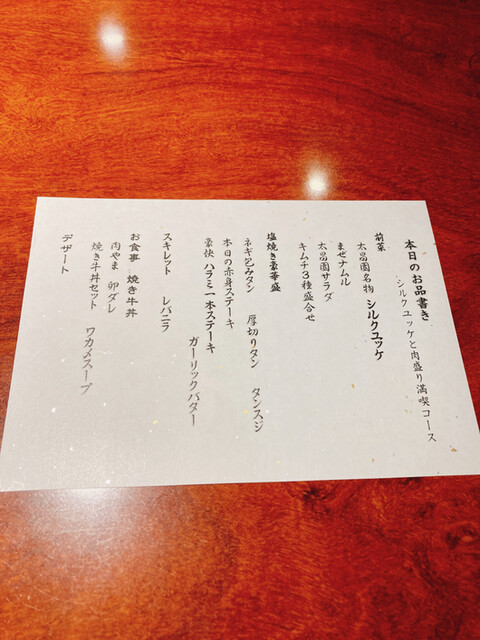 本日のお品書き
シルクユッケと肉盛り満喫コース
前菜
太昌園名物 シルクユッケ
まぜナムル
太昌園サラダ
キムチ3種盛合せ
塩焼き豪華盛
ネギ包みタン 厚切りタン タンスジ
本日の赤身ステーキ
豪快 ハラミ一本ステーキ
ガーリックバター
スキレット レバニラ
お食事 焼き牛丼
肉やま 卵ダレ
焼き牛丼セット ワカメスープ
デザート